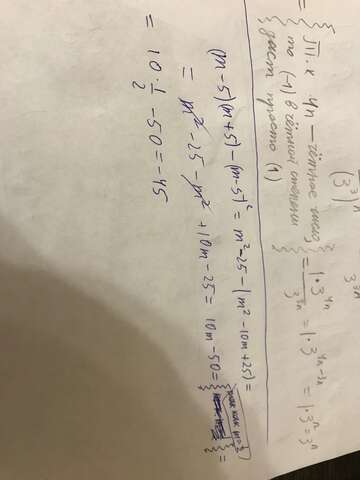 =
П.к 4n — чётное число
то (-1) в чётной степени
даст просто (1)
= 1·3⁴ⁿ / 3³ⁿ = 1·3⁴ⁿ⁻³ⁿ = 1·3ⁿ = 3ⁿ
(m-5)(m+5)-(m-5)² = m²-25-(m²-10m+25) =
= m²-25-m²+10m-25 = 10m-50 = {так как m=½} =
= 10·½-50 = -45